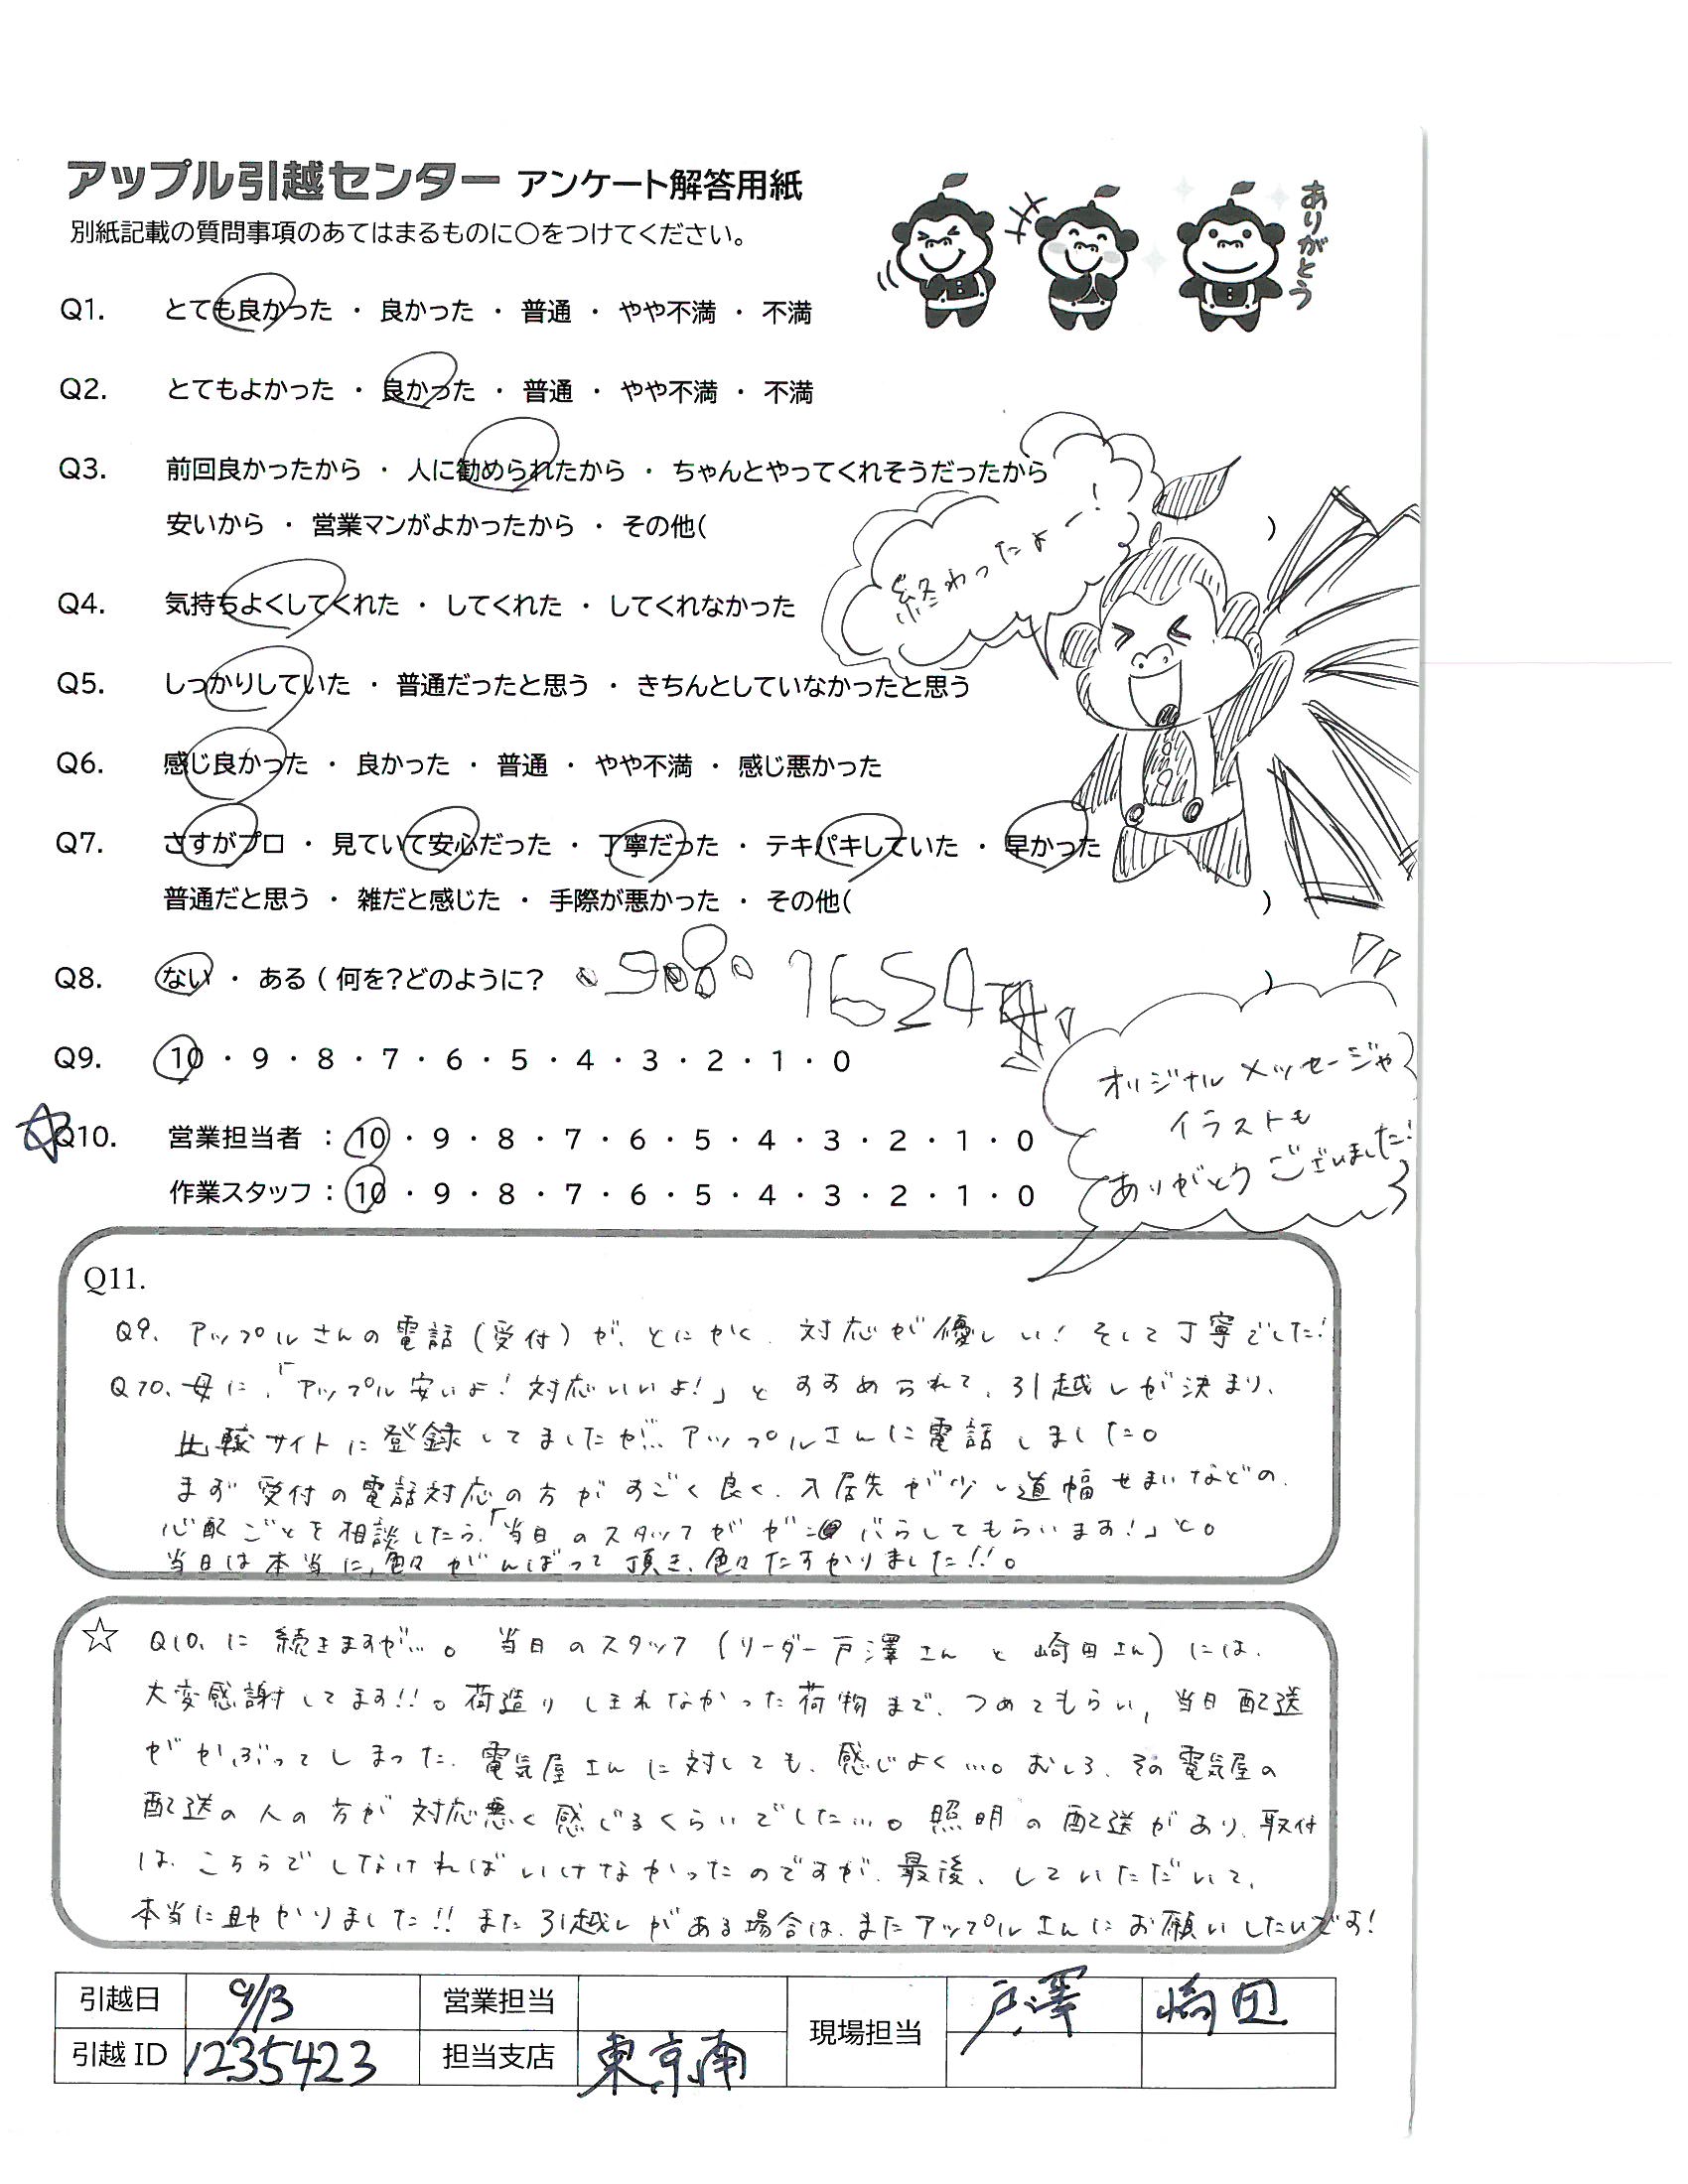 アップル引越センター アンケート解答用紙
別紙記載の質問事項のあてはまるものに〇をつけてください。
ありがとう
Q1. とても良かった ・ 良かった ・ 普通 ・ やや不満 ・ 不満
Q2. とてもよかった ・ 良かった ・ 普通 ・ やや不満 ・ 不満
Q3. 前回良かったから ・ 人に勧められたから ・ ちゃんとやってくれそうだったから
安いから ・ 営業マンがよかったから ・ その他( )
終わったよー!
Q4. 気持ちよくしてくれた ・ してくれた ・ してくれなかった
Q5. しっかりしていた ・ 普通だったと思う ・ きちんとしていなかったと思う
Q6. 感じ良かった ・ 良かった ・ 普通 ・ やや不満 ・ 感じ悪かった
Q7. さすがプロ ・ 見ていて安心だった ・ 丁寧だった ・ テキパキしていた ・ 早かった
普通だと思う ・ 雑だと感じた ・ 手際が悪かった ・ その他( )
Q8. ない ・ ある ( 何を?どのように? )
Q9. 10 ・ 9 ・ 8 ・ 7 ・ 6 ・ 5 ・ 4 ・ 3 ・ 2 ・ 1 ・ 0
オリジナルメッセージや
イラストも
ありがとうございました!
☆Q10. 営業担当者 : 10 ・ 9 ・ 8 ・ 7 ・ 6 ・ 5 ・ 4 ・ 3 ・ 2 ・ 1 ・ 0
作業スタッフ : 10 ・ 9 ・ 8 ・ 7 ・ 6 ・ 5 ・ 4 ・ 3 ・ 2 ・ 1 ・ 0
Q11.
Q9. アップルさんの電話(受付)が、とにかく、対応が優しい!そして丁寧でした!
Q10. 母に、「アップル安いよ!対応いいよ!」とすすめられて、引越しが決まり、
比較サイトに登録してましたが…アップルさんに電話しました。
まず受付の電話対応の方がすごく良く、入居先が少し道幅せまいなどの、
心配ごとを相談したら、「当日のスタッフががんばらしてもらいます!」と。
当日は本当に、色々がんばって頂き、色々たすかりました!!。
☆ Q10. に続きますが…。当日のスタッフ(リーダー戸澤さんと崎田さん)には、
大変感謝してます!!。荷造りしきれなかった荷物まで、つめてもらい、当日配送
がかぶってしまった、電気屋さんに対しても、感じよく…。むしろ、その電気屋の
配送の人の方が対応悪く感じるくらいでした…。照明の配送があり、取付
は、こちらでしなければいけなかったのですが、最後、していただいて、
本当に助かりました!!また引越しがある場合は、またアップルさんにお願いしたいです!
引越日 9/13 営業担当 現場担当 戸澤 崎田
引越ID 1235423 担当支店 東京南